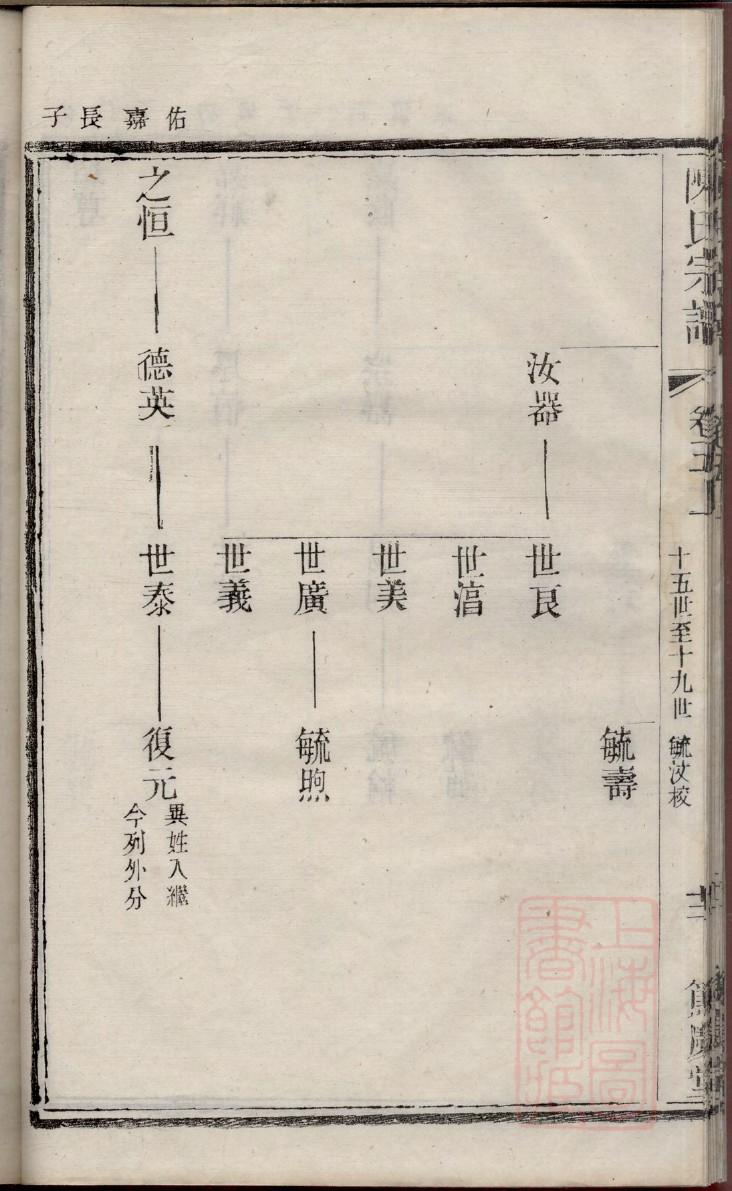 陳氏宗譜
卷五上
十五世至十九世
毓汶校
毓壽
汝器
世良
世淯
世美
世廣
毓煦
世義
佑嘉長子
之恒
德英
世泰
復元
異姓入繼
今列外分
上海圖
書館藏